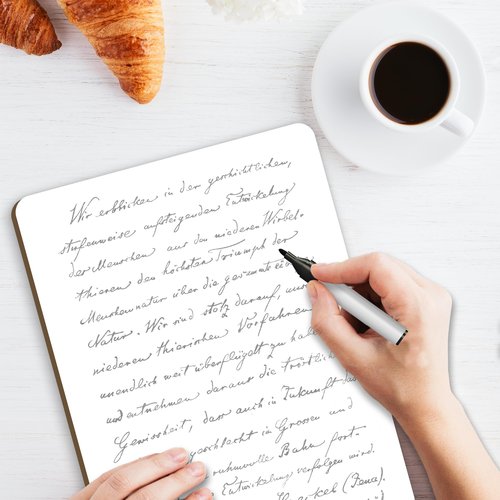 Wir erblicken in der geschichtlichen,
stufenweise aufsteigenden Entwickelung
der Menschen aus den niederen Wirbel-
thieren den höchsten Triumph der
Menschennatur über die gesammte
Natur. Wir sind stolz darauf, uns
niederen thierischen Vorfahren
unendlich weit überflügelt zu haben
und entnehmen daraus die tröstliche
Gewissheit, dass auch in Zukunft das
geschlecht in Grossen und
ruhmvolle Bahn fort-
Entwickelung verfolgen wird.
Haeckel (Jena).